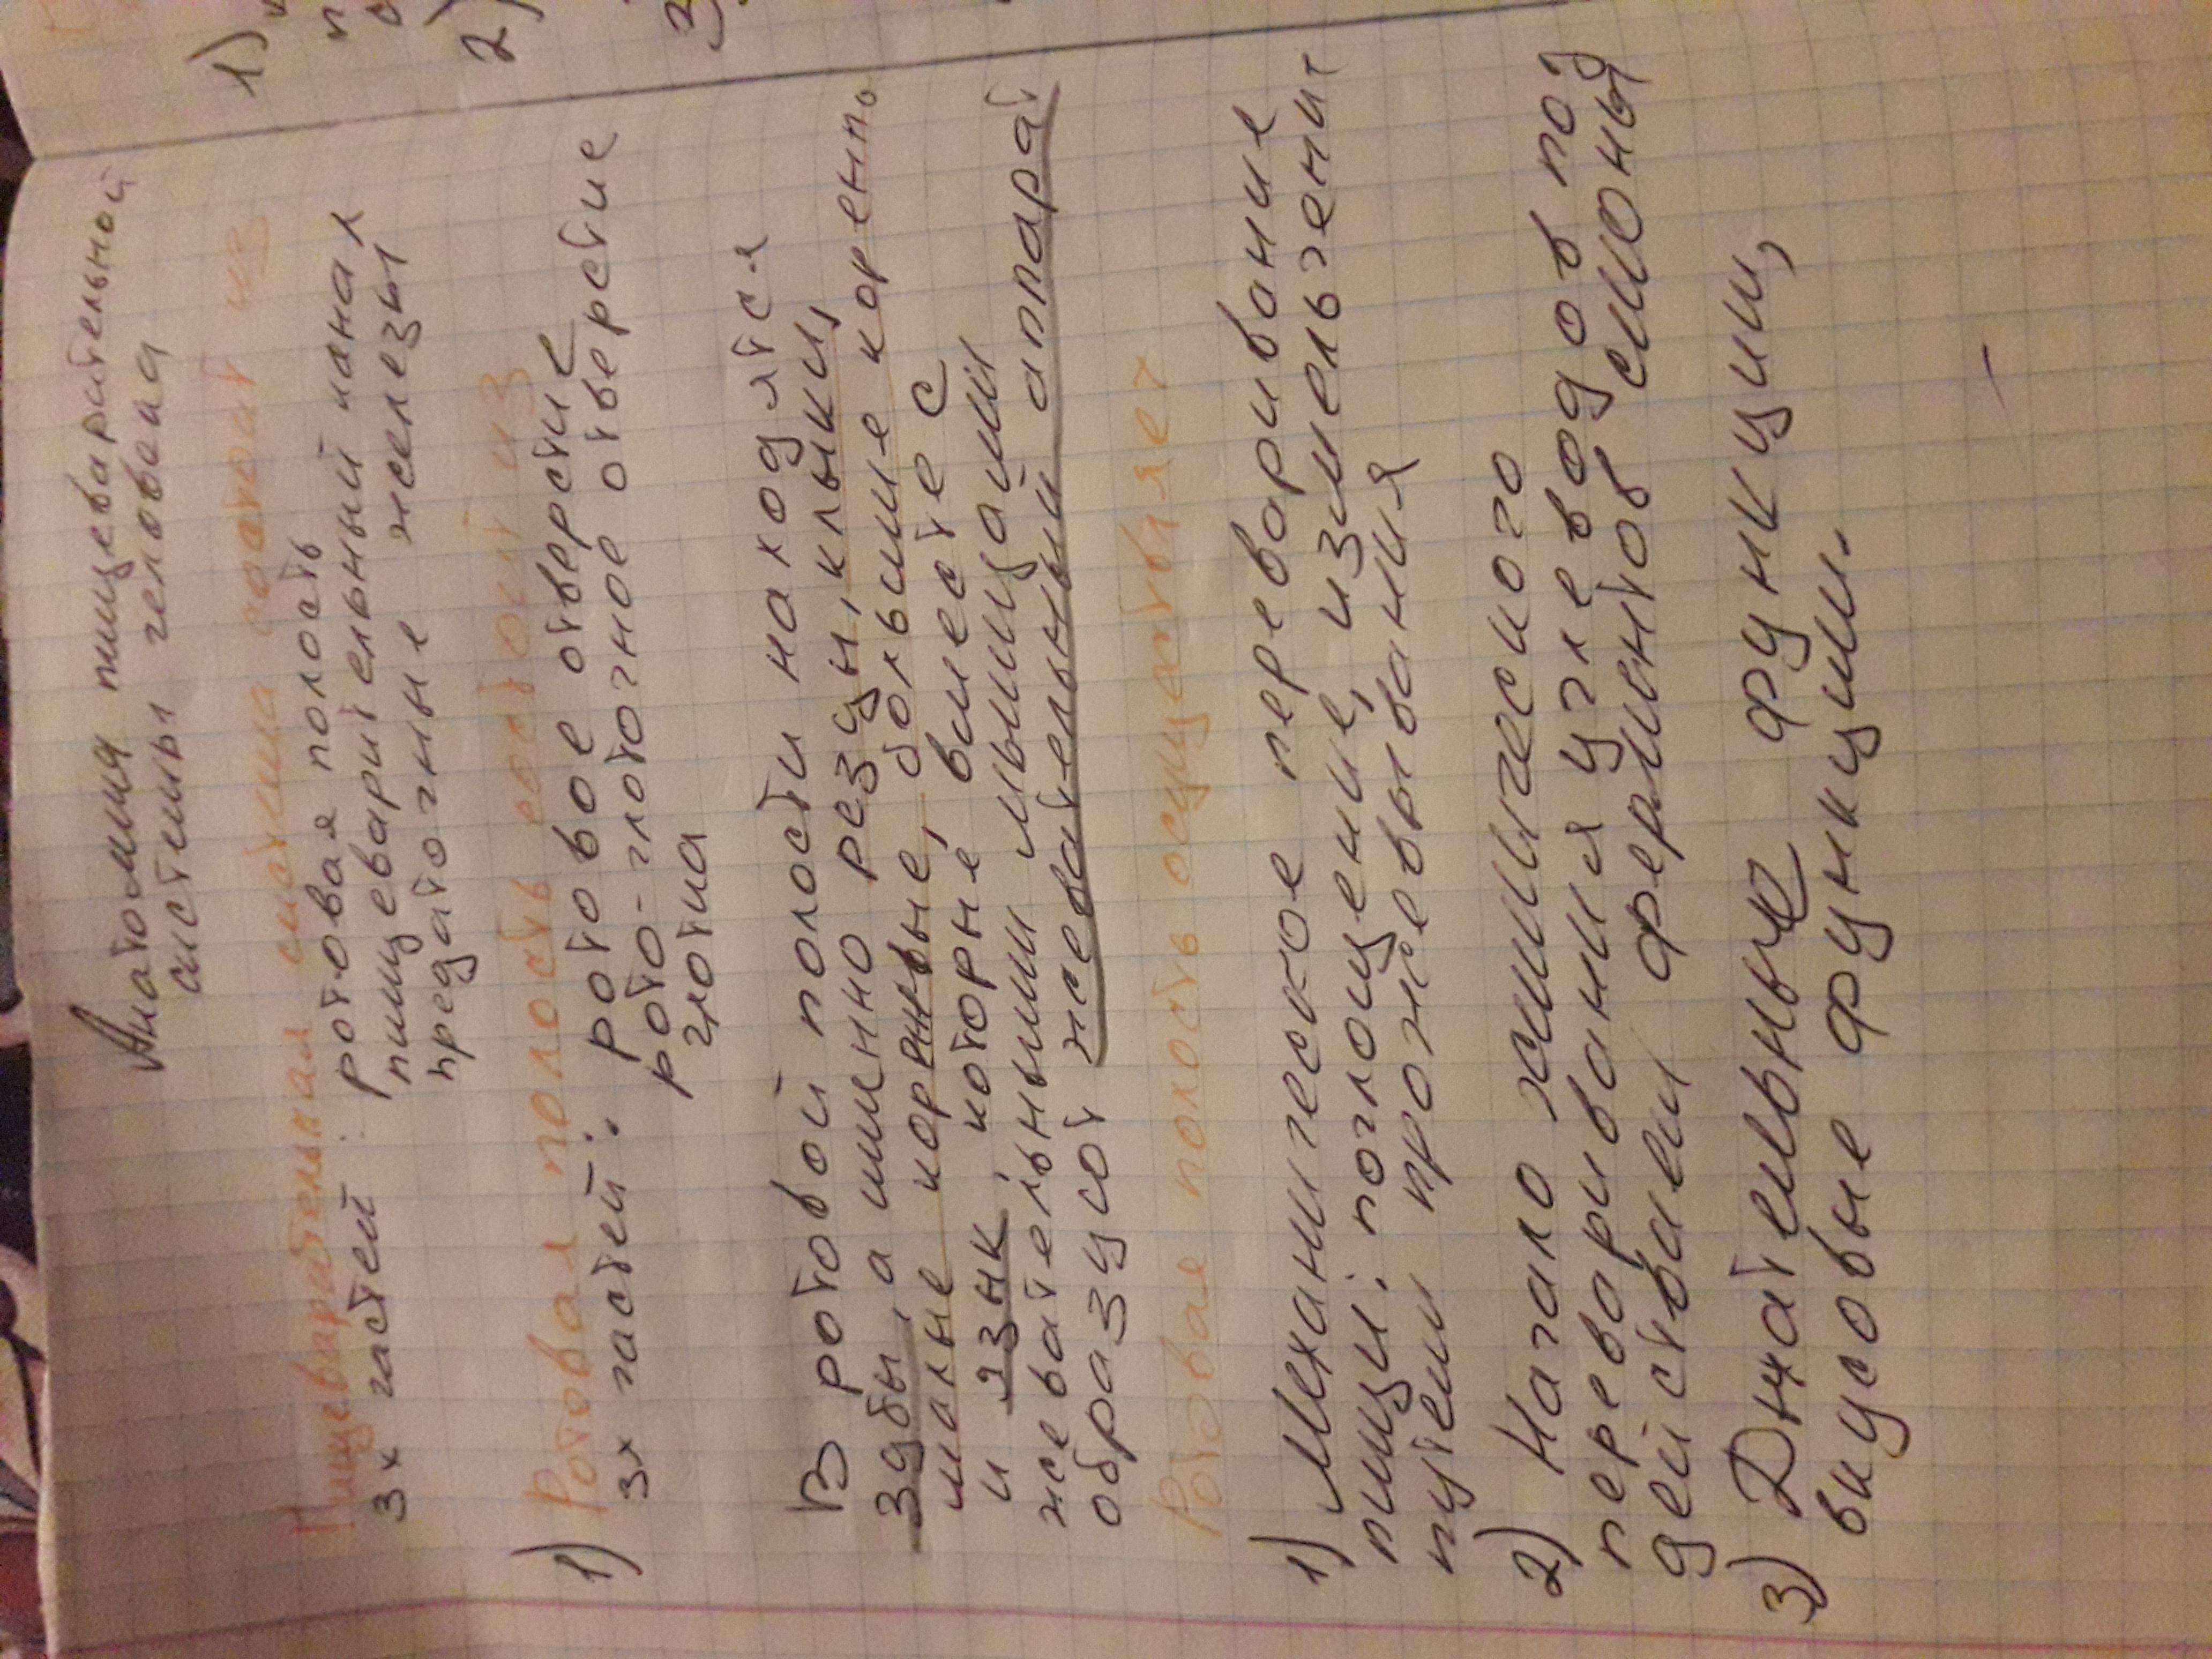 Анатомия пищеварительной
системы человека
Пищеварительная система состоит из
3х частей: ротовая полость
пищеварительный канал
предаточные железы
1) Ротовая полость состоит из
3х частей: ротовое отверстие
рото-глоточное отверстие
глотка
В ротовой полости находятся
зубы, а именно резцы, клыки,
малые коренные, большие коренные
и язык, которые вместе с
жевательными мышцами
образуют жевательный аппарат
Ротовая полость осуществляет
1) Механическое переваривание
пищи: поглощение, измельчение
путем прожевывания
2) Начало химического
переваривания углеводов под
действием ферментов слюны
3) Дыхательные функции,
вкусовые функции.
1)
2)
3